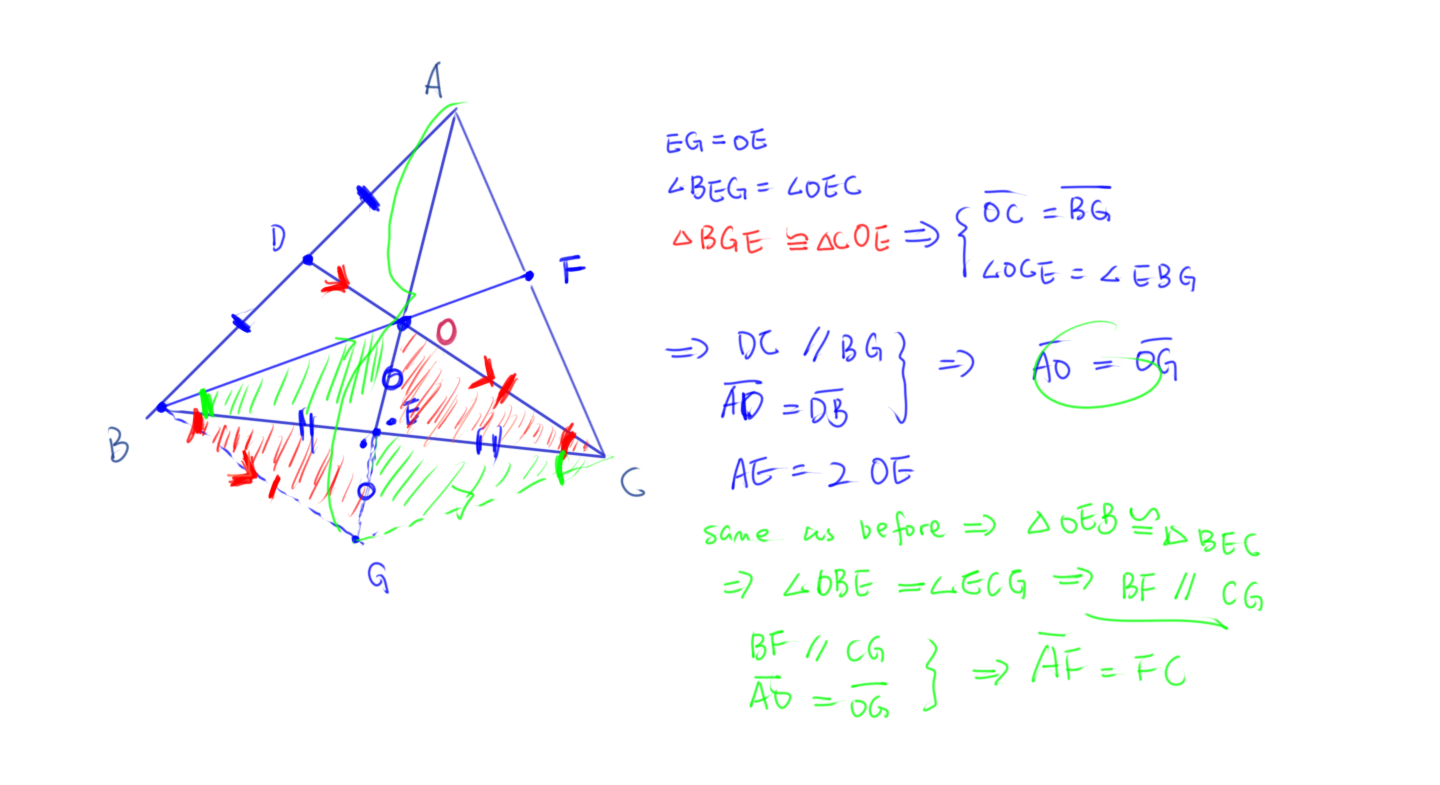 A
D
F
O
E
B
C
G
EG = OE
∠BEG = ∠OEC
△BGE ≅ △COE ⇒ { OC = BG
∠OCE = ∠EBG
⇒ DC // BG
AD = DB } ⇒ AO = OG
AE = 2 OE
same as before ⇒ △OEB ≅ △BEC
⇒ ∠OBE = ∠ECG ⇒ BF // CG
BF // CG
AO = OG } ⇒ AF = FC